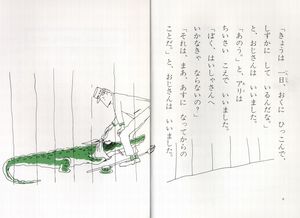 「きょうは　一日、おくに　ひっこんで、
しずかに　して　いるんだな。」
と、おじさんは　いいました。
「あのう。」と、アリは
ちいさい　こえで　いいました。
「ぼく、はいしゃさんへ
いかなきゃ　ならないの？」
「それは、まあ、あすに　なってからの
ことだ。」と、おじさんは　いいました。